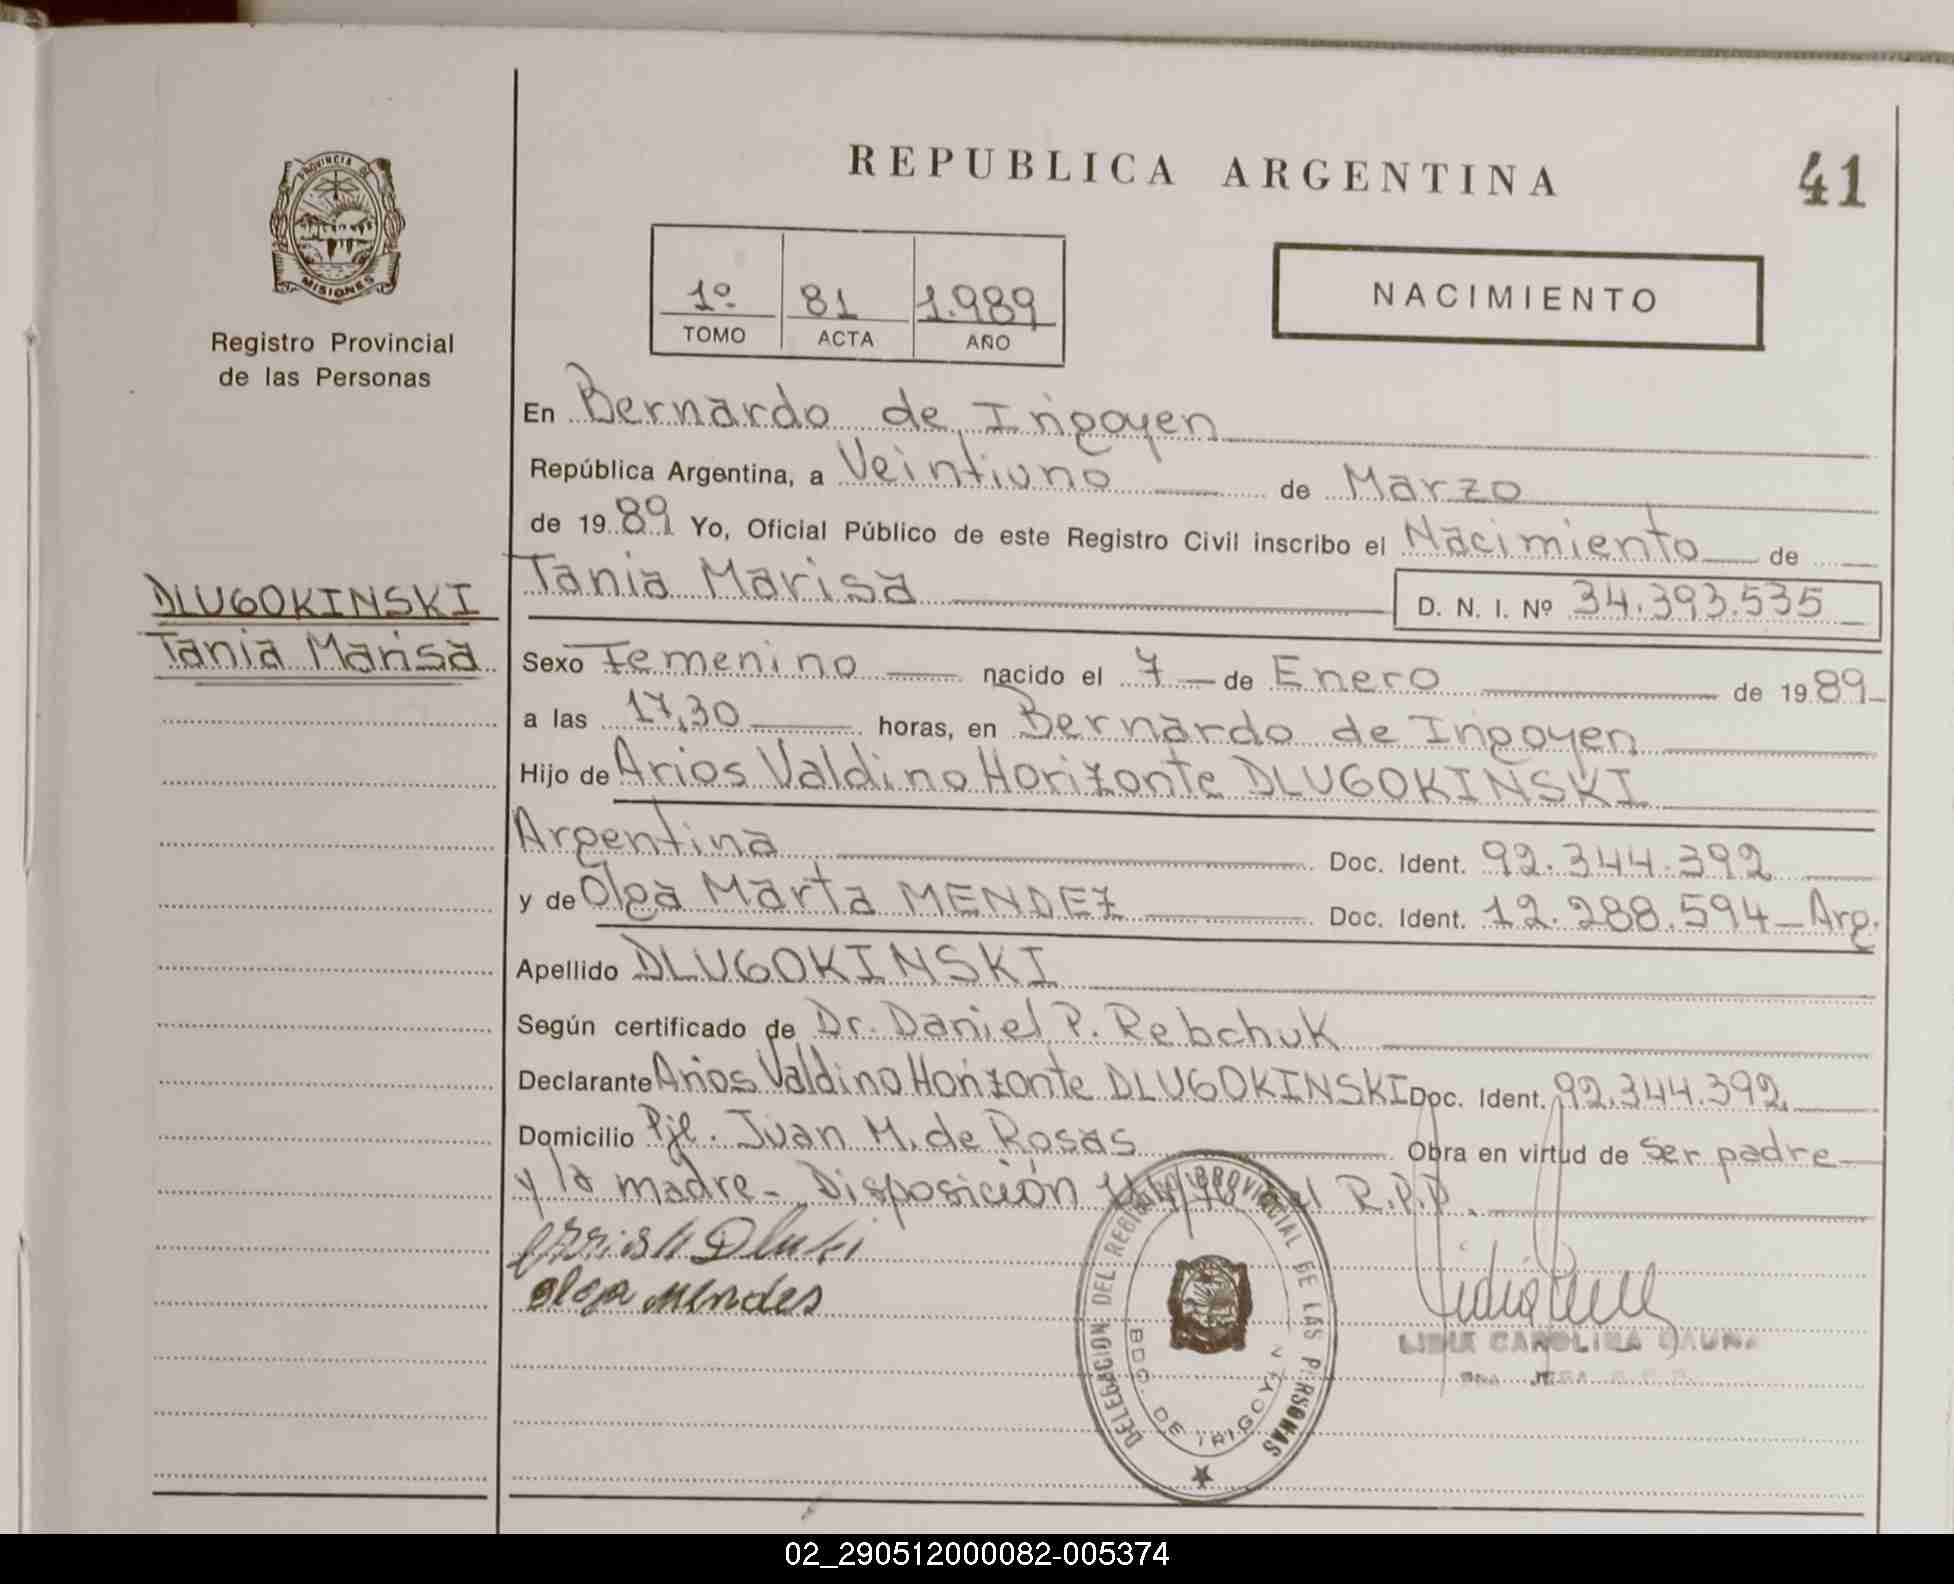 REPUBLICA ARGENTINA
41
PROVINCIA DE
MISIONES
Registro Provincial
de las Personas
1º 81 1.989
TOMO ACTA AÑO
NACIMIENTO
En Bernardo de Irigoyen
República Argentina, a Veintiuno de Marzo
de 1989 Yo, Oficial Público de este Registro Civil inscribo el Nacimiento de
DLUGOKINSKI
Tania Marisa
Tania Marisa D. N. I. Nº 34.393.535
Sexo Femenino nacido el 7 de Enero de 1989
a las 17,30 horas, en Bernardo de Irigoyen
Hijo de Arios Valdino Horizonte DLUGOKINSKI
Argentina Doc. Ident. 92.344.392
y de Olga Marta MENDEZ Doc. Ident. 12.288.594 - Arg.
Apellido DLUGOKINSKI
Según certificado de Dr. Daniel P. Rebchuk
Declarante Arios Valdino Horizonte DLUGOKINSKI Doc. Ident. 92.344.392
Domicilio Pje. Juan M. de Rosas Obra en virtud de ser padre
y la madre - Disposición del R.P.P.
Olga Mendes
DELEGACION DEL REGISTRO PROVINCIAL DE LAS PERSONAS
BDO. DE IRIGOYEN
LIDIA CAROLINA
02_290512000082-005374